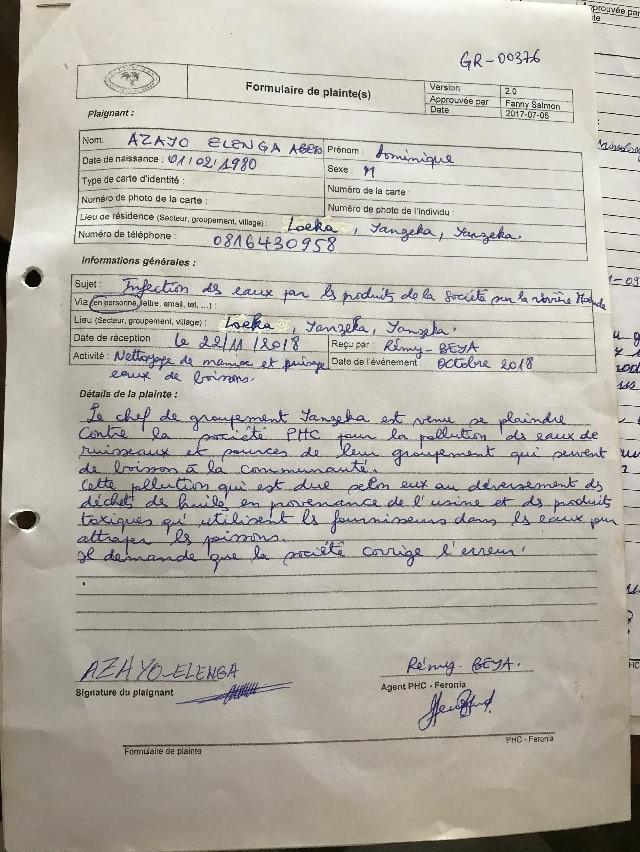 GR-00376
Formulaire de plainte(s)
Version 2.0
Approuvée par Fanny Salmon
Date 2017-07-05
Plaignant :
Nom: AZAYO ELENGA
Prénom : Dominique
Date de naissance : 01/02/1980
Sexe : M
Type de carte d'identité :
Numéro de la carte :
Numéro de photo de la carte :
Numéro de photo de l'individu :
Lieu de résidence (Secteur, groupement, village) : Loeka, Yanzeka, Yanzeka.
Numéro de téléphone : 0816430958
Informations générales :
Sujet : Infection des eaux par les produits de la Société sur la rivière
Via (en personne, lettre, email, tel, ...) :
Lieu (Secteur, groupement, village) : Loeka, Yanzeka, Yanzeka.
Date de réception : le 22/11/2018
Reçu par : Rémy-BEYA
Activité : Nettoyage de manioc et puisage
Date de l'événement : Octobre 2018
eaux de boissons.
Détails de la plainte :
Le chef de groupement Yanzeka est venue se plaindre
contre la société PHC pour la pollution des eaux de
ruisseaux et sources de leur groupement qui servent
de boisson à la communauté.
Cette pollution qui est due selon eux au déversement des
déchets de huile en provenance de l'usine et des produits
toxiques qu'utilisent les fournisseurs dans les eaux pour
attraper les poissons.
Il demande que la société corrige l'erreur.
AZAYO-ELENGA
Signature du plaignant
Rémy-BEYA.
Agent PHC - Feronia
Formulaire de plainte
PHC - Feronia